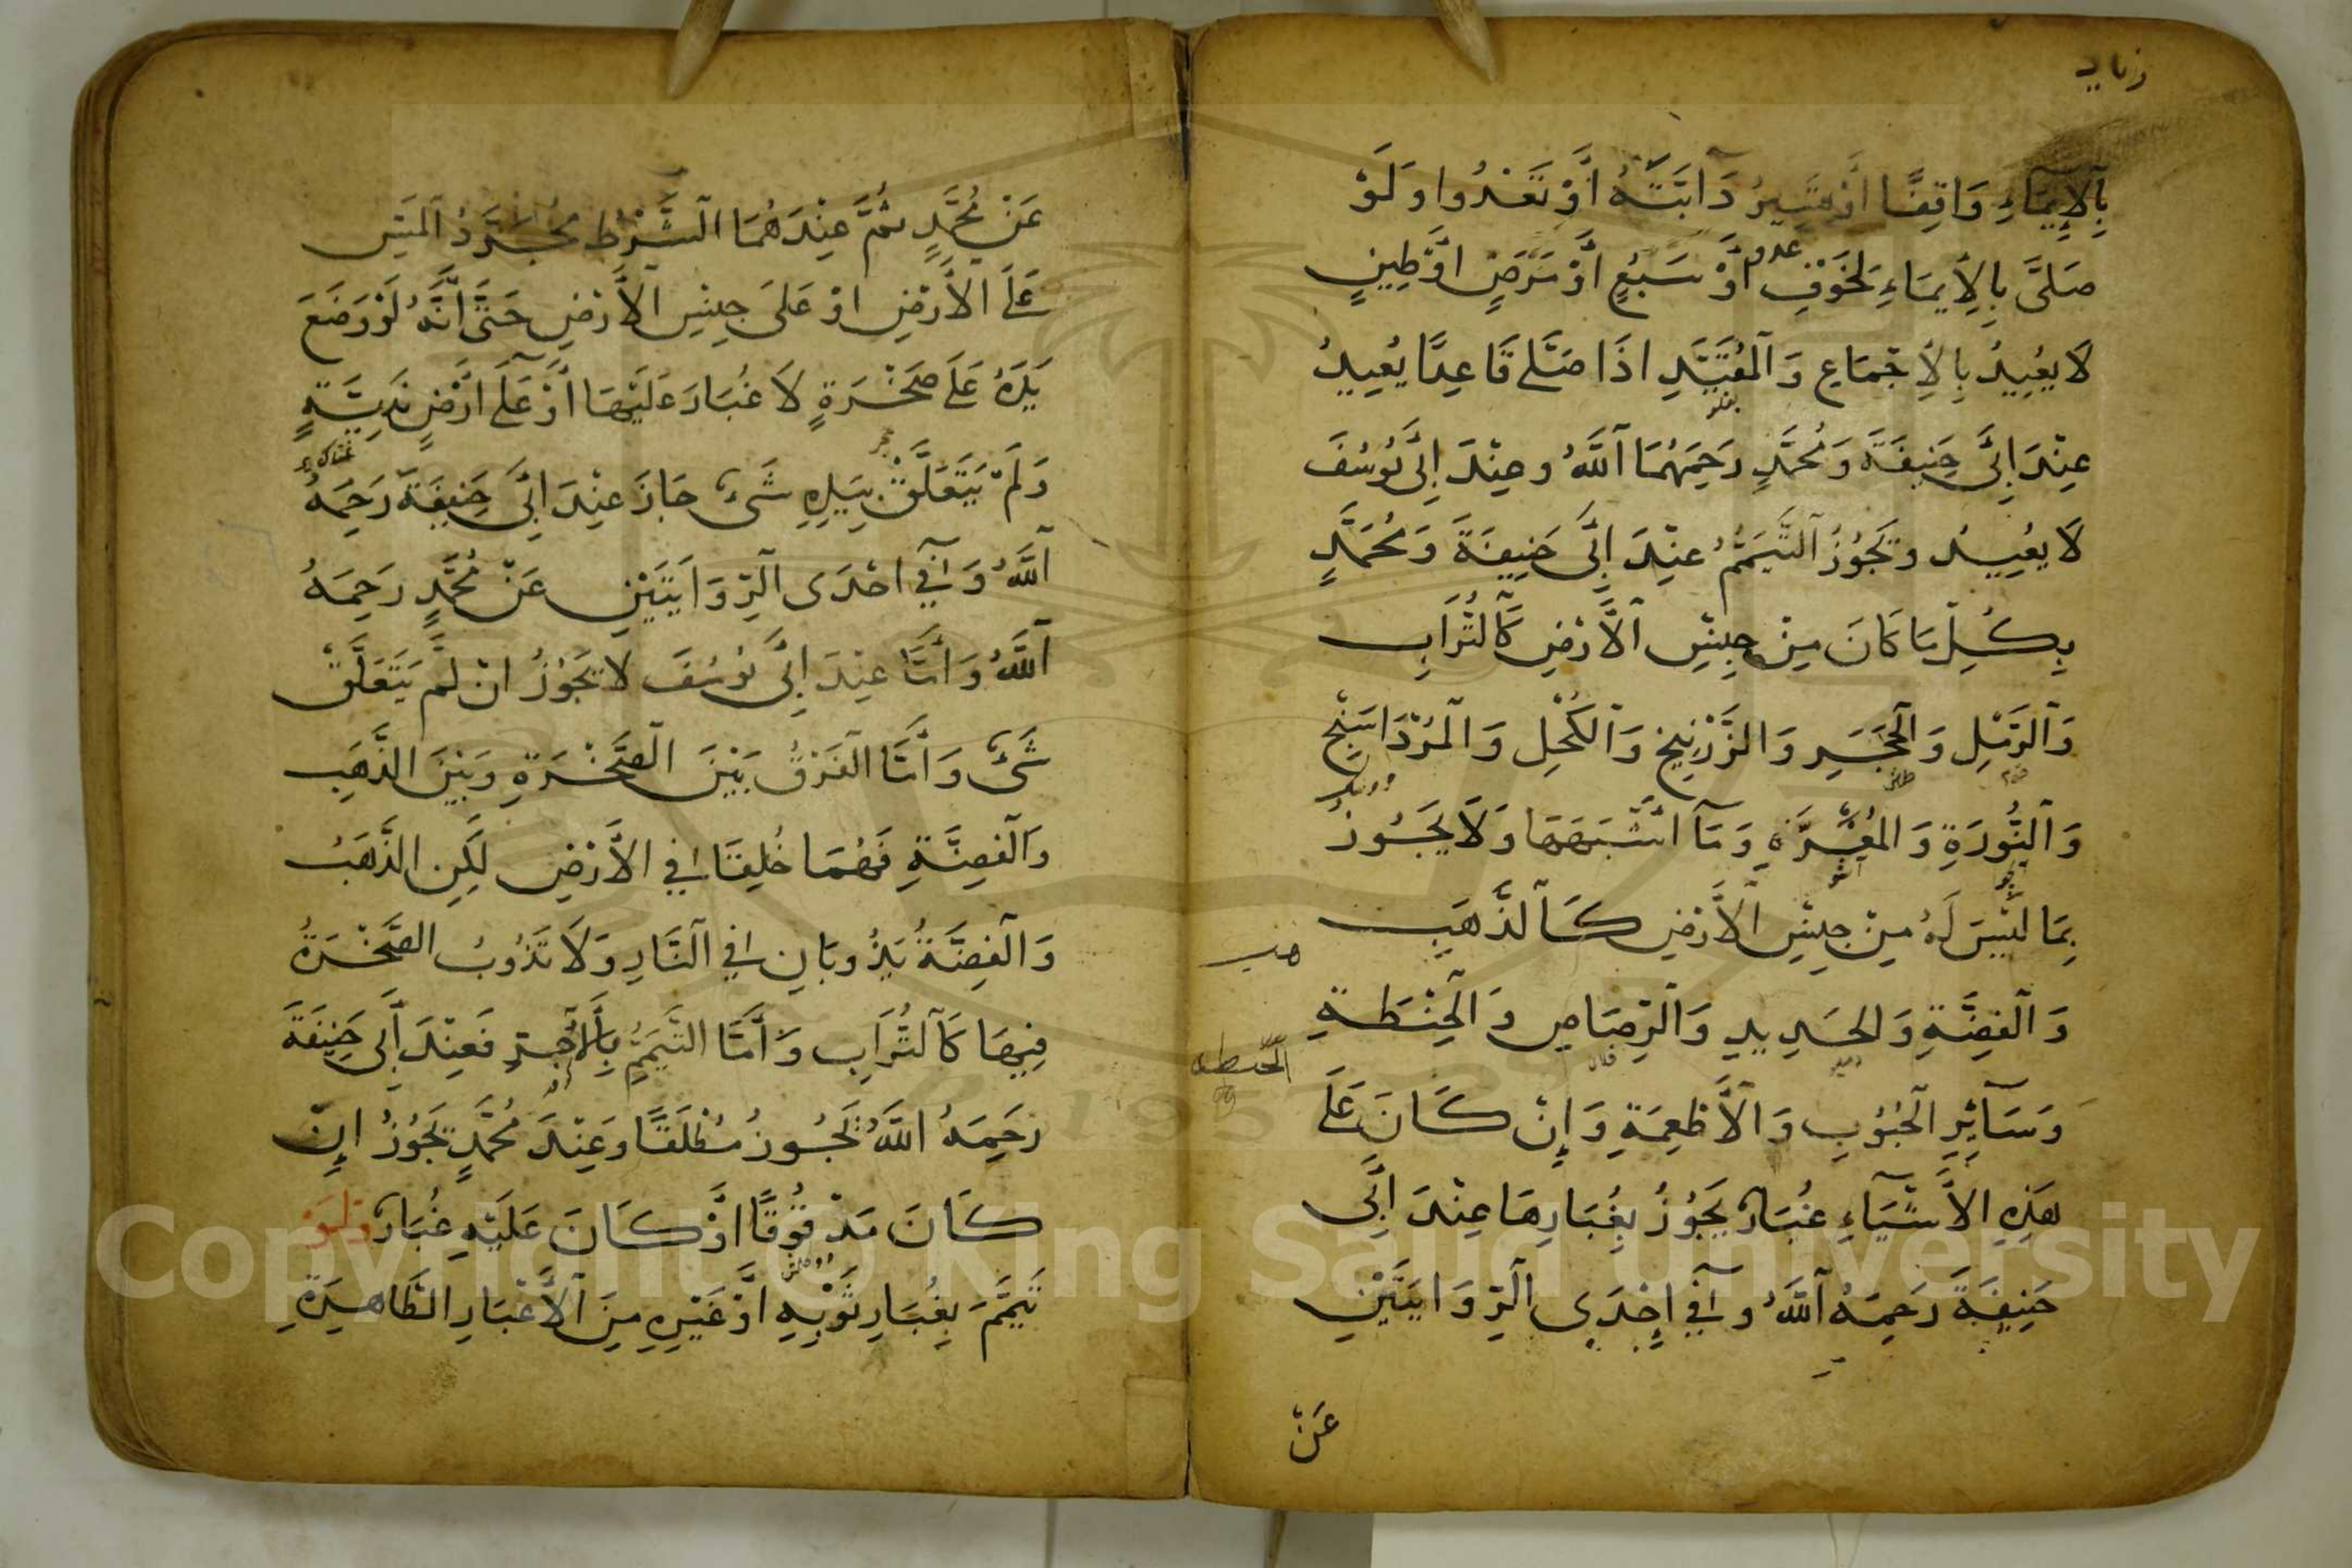 بِالْإِيمَاءِ وَاقِفًا أَوْ تَسِيرُ دَابَّتُهُ أَوْ تَعْدُوا وَلَوْ
صَلَّى بِالْإِيمَاءِ لِخَوْفِ عدو أَوْ سَبُعٍ أَوْ مَرَضٍ أَوْ طِينٍ
لَا يُعِيدُ بِالْإِجْمَاعِ وَالْمُقَيَّدِ اذَا صَلَّى قَاعِدًا يُعِيدُ
عِنْدَ أَبِي حَنِيفَةَ وَمُحَمَّدٍ رَحِمَهُمَا اللَّهُ وعِنْدَ أَبِي يُوسُفَ
لَا يُعِيدُ وَيَجُوزُ التَّيَمُّمُ عِنْدَ أَبِي حَنِيفَةَ وَمُحَمَّدٍ
بِكُلِّ مَا كَانَ مِنْ جِنْسِ الْأَرْضِ كَالتُّرَابِ
وَالرَّمْلِ وَالْحَجَرِ وَالزَّرْنِيخِ وَالْكُحْلِ وَالْمُرْدَاسَنْجِ
وَالنُّورَةِ وَالْمُغْرَةِ وَمَا اشْبَهَهَا وَلَا يَجُوزُ
بِمَا لَيْسَ لَهُ مِنْ جِنْسِ الْأَرْضِ كَالذَّهَبِ
هب
وَالْفِضَّةِ وَالحَدِيدِ وَالرَّصَاصِ وَالْحِنْطَةِ
الحنطة
وَسَائِرِ الْحُبُوبِ وَالْأَطْعِمَةِ وَإِنْ كَانَ عَلَى
هَذِهِ الْأَشْيَاءِ غُبَارٌ يَجُوزُ بِغُبَارِهَا عِنْدَ أَبِي
حَنِيفَةَ رَحِمَهُ اللَّهُ وفِي إِحْدَى الرِّوَايَتَيْنِ
عَنْ
عَنْ مُحَمَّدٍ ثُمَّ عِنْدَهُمَا الشَّرْطُ مُجَرَّدُ الْمَسِّ
عَلَى الْأَرْضِ اوْ عَلَى جِنْسِ الْأَرْضِ حَتَّى أَنَّهُ لَوْ وَضَعَ
يَدَهُ عَلَى صَخْرَةٍ لَا غُبَارَ عَلَيْهَا أَوْ عَلَى أَرْضٍ نَدِيَّةٍ
وَلَمْ يَتَعَلَّقْ بِيَدِهِ شَيْءٌ جَازَ عِنْدَ أَبِي حَنِيفَةَ رَحِمَهُ
اللَّهُ وَفِي احْدَى الرِّوَايَتَيْنِ عَنْ مُحَمَّدٍ رَحِمَهُ
اللَّهُ وَأَمَّا عِنْدَ أَبِي يُوسُفَ لَا يَجُوزُ انْ لَمْ يَتَعَلَّقْ
شَيْءٌ وَأَمَّا الْفَرْقُ بَيْنَ الصَّخْرَةِ وَبَيْنَ الذَّهَبِ
وَالْفِضَّةِ فَهُمَا خُلِقَا فِي الْأَرْضِ لَكِنِ الذَّهَبُ
وَالْفِضَّةُ يَذُوبَانِ فِي النَّارِ وَلَا تَذُوبُ الصَّخْرَةُ
فِيهَا كَالتُّرَابِ وَأَمَّا التَّيَمُّمُ بِالْآجُرِّ فَعِنْدَ أَبِي حَنِيفَةَ
رَحِمَهُ اللَّهُ يَجُوزُ مُطْلَقًا وَعِنْدَ مُحَمَّدٍ يَجُوزُ انْ
كَانَ مَدْقُوقًا أَوْ كَانَ عَلَيْهِ غُبَارٌ وَلَوْ
تَيَمَّمَ بِغُبَارِ ثَوْبِهِ أَوْ غَيْرِهِ مِنَ الْأَغْبَارِ الطَّاهِرَةِ
Copyright © King Saud University
1957